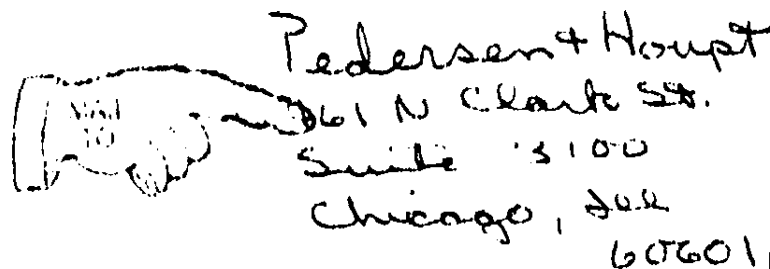 MAIL
TO
Pedersen & Houpt
161 N Clark St.
Suite 3100
Chicago, Ill
60601